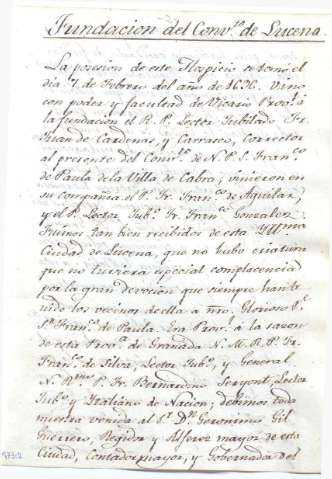 Fundacion del Conv.to de Lucena.
La posesion de este Hospicio se tomó el
dia 7 de Febrero del año de Vino
con poder y facultad de Vicario Prov.l à
la fundacion el R. P. Lector Jubilado Fr.
Juan de Cardenas, y Carrasco, Corrector
al presente del Conv.to de N. P. S. Fran.co
de Paula de la Villa de Cabra; vinieron en
su compañia el P. Fr. Fran.co de Aguilar,
y el P. Lector Jub.o Fr. Fran.co Gonzalez
Fuimos tan bien recibidos de esta Yll.ma
Ciudad de Lucena, que no hubo criatura
que no tuviera especial complacencia
por la gran devocion que siempre han te
nido los vecinos de ella a nro. Glorioso P.e
S.n Fran.co de Paula. Era Prov.l à la sazon
de esta Prov.a de Granada N. M. R. P. Fr.
Fran.co de Silva, Lector Jub.o, y General
N. R.mo P. Fr. Bernardino Lector
Jub.o y Ytaliano de Nacion; debimos toda
nuestra venida al S.r D.n Geronimo Gil
Guerrero, Regidor y Alferez mayor de esta
Ciudad, Contador mayor, y Gobernador del